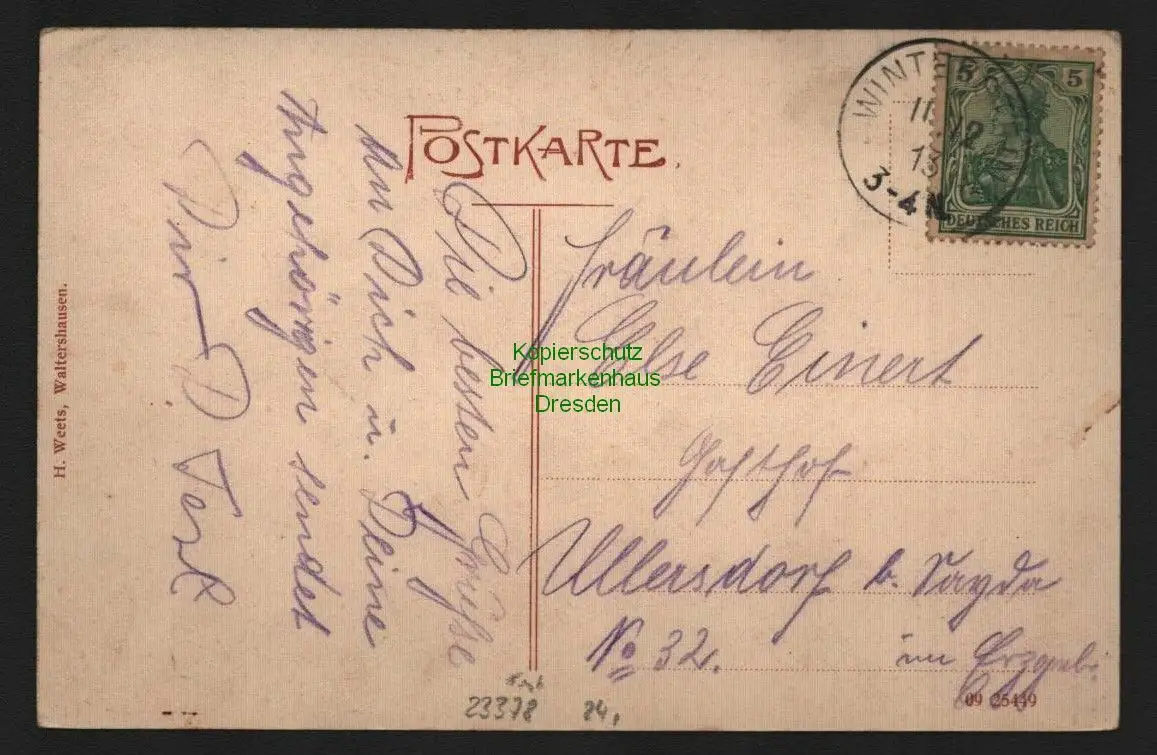 POSTKARTE.
WINTERSTEIN
11.12
13
3-4N.
5 5
DEUTSCHES REICH
Die besten Grüße
an Dich u. Deine
Angehörigen sendet
Dir D.
Fräulein
Else Einert
Gasthof
Ullersdorf b. Sayda
No 32.
im Erzgeb.
H. Weets, Waltershausen.
Kopierschutz
Briefmarkenhaus
Dresden
09 25449
23378 24,